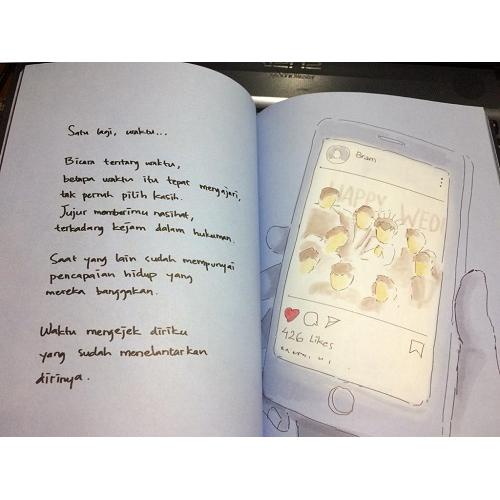 Satu lagi, waktu...
Bicara tentang waktu,
betapa waktu itu tepat mengajari,
tak pernah pilih kasih.
Jujur memberimu nasihat,
terkadang kejam dalam hukuman.
Saat yang lain sudah mempunyai
pencapaian hidup yang
mereka banggakan.
Waktu mengejek diriku
yang sudah menelantarkan
dirinya.
Bram
HAPPY WED
426 Likes